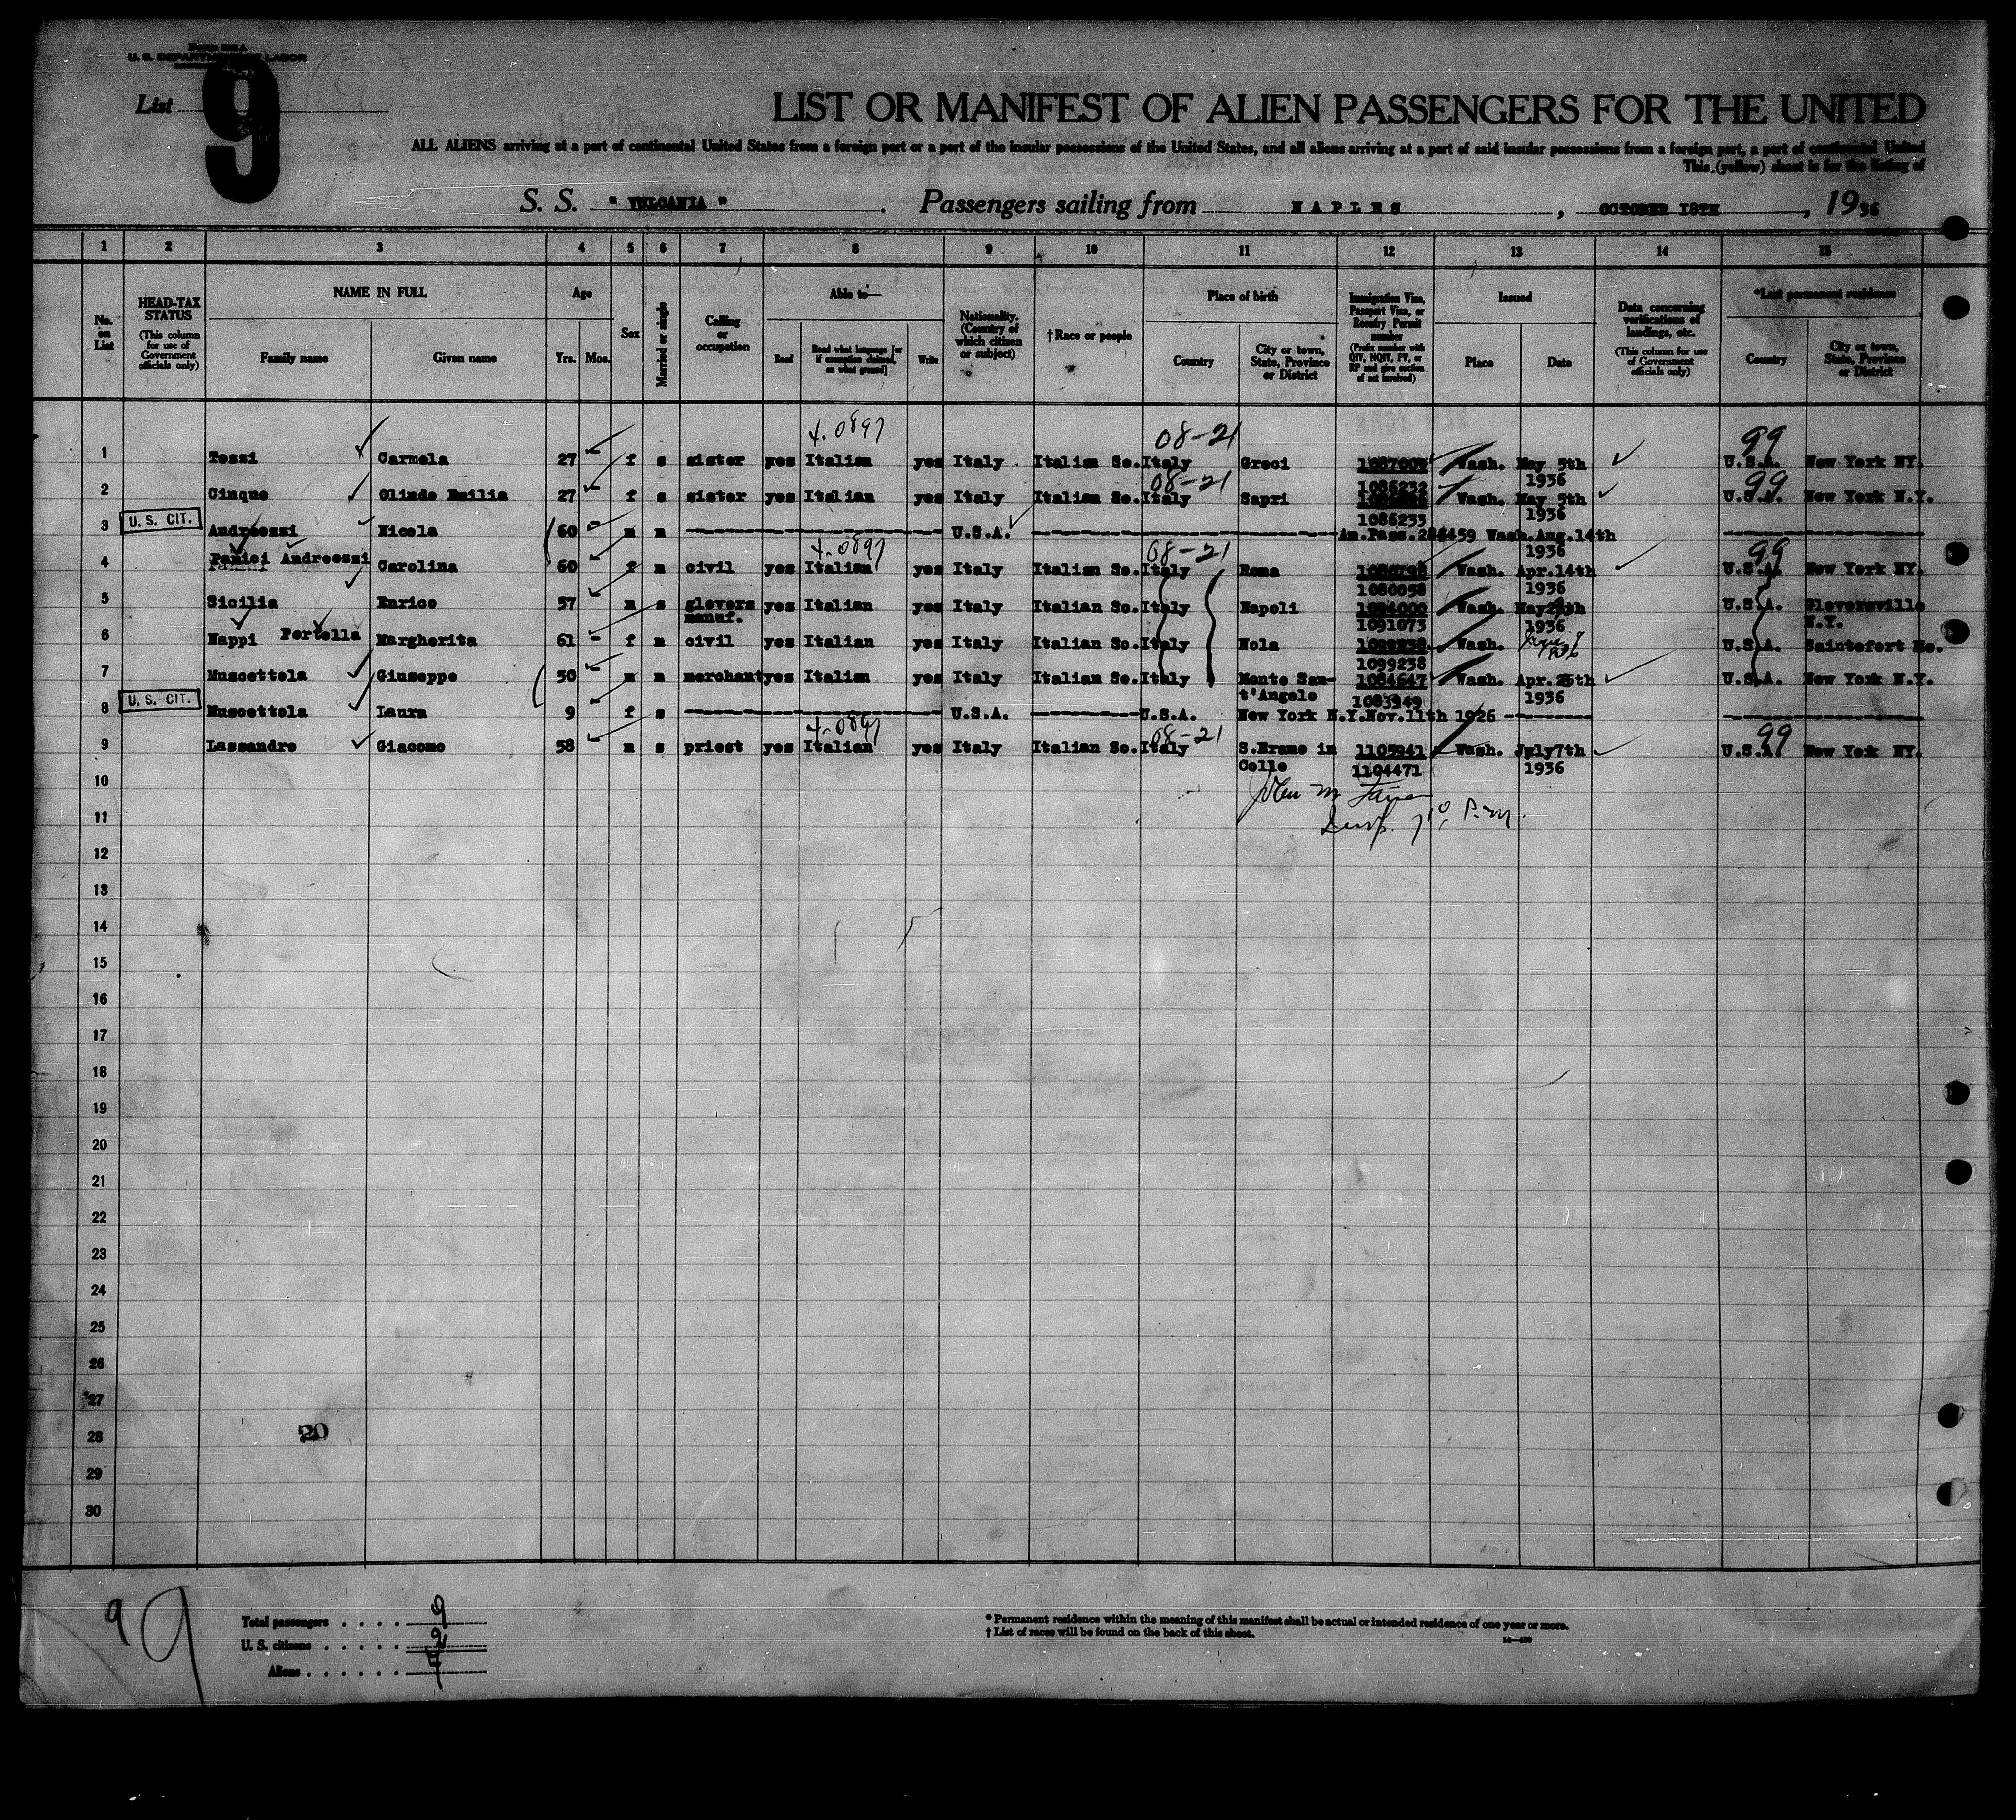 U. S. DEPARTMENT OF LABOR
List 9
LIST OR MANIFEST OF ALIEN PASSENGERS FOR THE UNITED
ALL ALIENS arriving at a port of continental United States from a foreign port or a port of the insular possessions of the United States, and all aliens arriving at a port of said insular possessions from a foreign port, a port of continental United
This (yellow) sheet is for the listing of
S. S. " VULCANIA " . Passengers sailing from NAPLES , OCTOBER 18TH , 1936
1 2 3 4 5 6 7 8 9 10 11 12 13 14 15
No. on List
HEAD-TAX STATUS (This column for use of Government officials only)
NAME IN FULL Family name Given name
Age Yrs. Mos.
Sex
Married or single
Calling or occupation
Able to— Read Read what language [or if exemption claimed, on what ground] Write
Nationality. (Country of which citizen or subject)
†Race or people
Place of birth Country City or town, State, Province or District
Immigration Visa, Passport Visa, or Reentry Permit number (Prefix number with QIV, NQIV, PV, or RP and give section of act involved)
Issued Place Date
Data concerning verifications of landings, etc. (This column for use of Government officials only)
*Last permanent residence Country City or town, State, Province or District
08-21 99
1 Tozzi Carmela 27 f s sister yes Italian yes Italy Italian So. Italy Greci Wash. May 5th U.S.A. New York NY.
08-21 1086232 1936 99
2 Cinque Olinda Emilia 27 f s sister yes Italian yes Italy Italian So. Italy Sapri Wash. May 5th U.S.A. New York N.Y.
1086233 1936
3 U. S. CIT. Andreozzi Nicola 60 m m U.S.A. Am.Pass. Wash.Aug.14th
08-21 1936 99
4 Panici Andreozzi Carolina 60 f m civil yes Italian yes Italy Italian So. Italy Roma Wash. Apr.14th U.S.A. New York NY.
1080058 1936
5 Sicilia Enrico 57 m s glovers yes Italian yes Italy Italian So. Italy Napoli Wash. U.S.A. Gloversville
manuf. 1091073 1936 N.Y.
6 Nappi Portella Margherita 61 f m civil yes Italian yes Italy Italian So. Italy Nola Wash. U.S.A.
1099238
7 Muscettola Giuseppe 50 m m merchant yes Italian yes Italy Italian So. Italy Monte San- 1084647 Wash. Apr. U.S.A. New York N.Y.
t'Angelo 1083949 1936
8 U. S. CIT. Muscettola Laura 9 f s U.S.A. U.S.A. New York N.Y.Nov.11th 1926
08-21 99
9 Lassandro Giacomo 58 m s priest yes Italian yes Italy Italian So. Italy S.Eramo in 1105941 Wash. July7th U.S.A. New York NY.
Colle 1104471 1936
10
11
12
13
14
15
16
17
18
19
20
21
22
23
24
25
26
27
28
29
30
20
9 9
Total passengers . . . . 9
U. S. citizens . . . . . 2
Aliens . . . . . . 7
* Permanent residence within the meaning of this manifest shall be actual or intended residence of one year or more.
† List of races will be found on the back of this sheet.